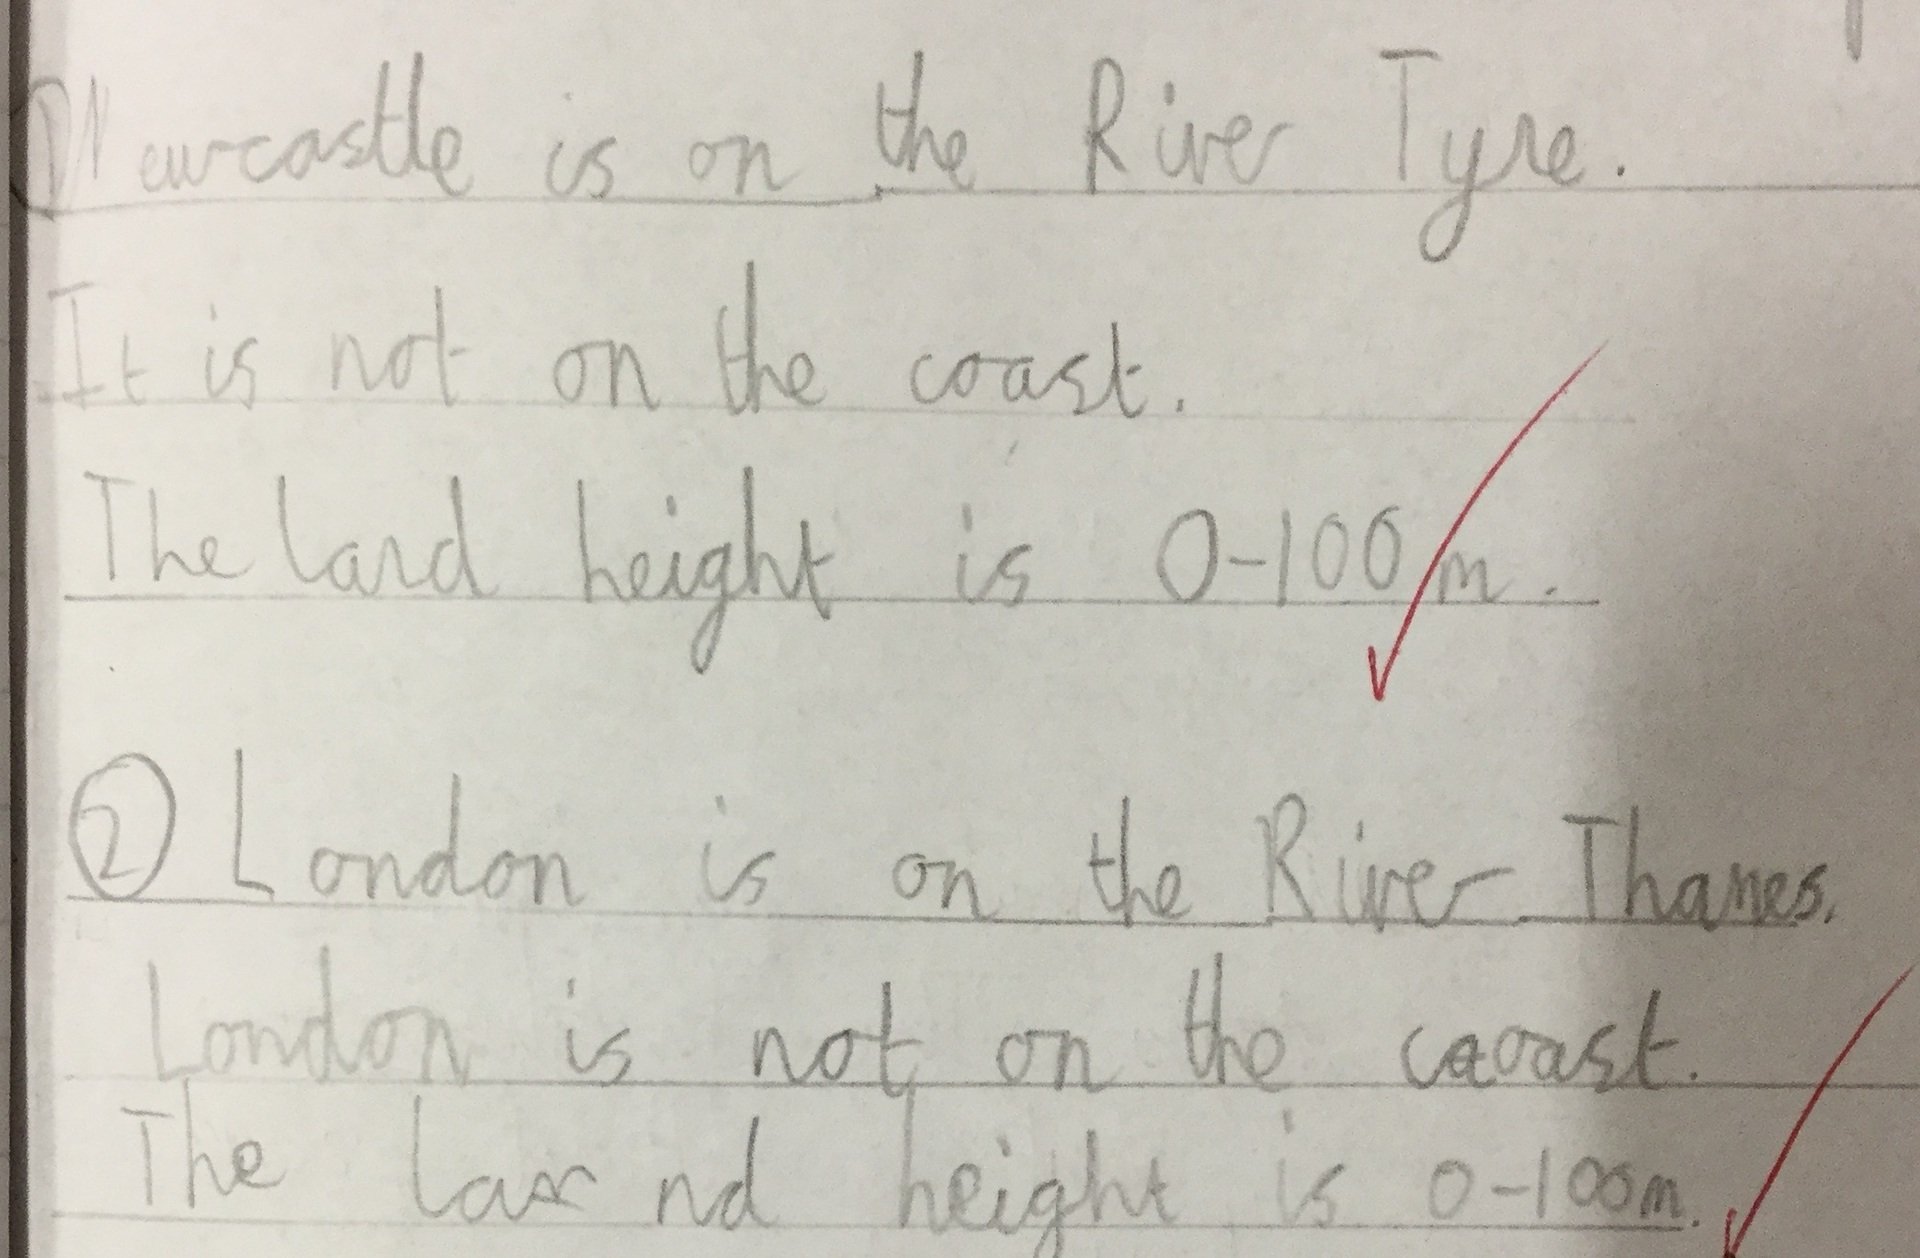 ① Newcastle is on the River Tyne.
It is not on the coast.
The land height is 0-100m.
② London is on the River Thames.
London is not on the caoast.
The land height is 0-100m.